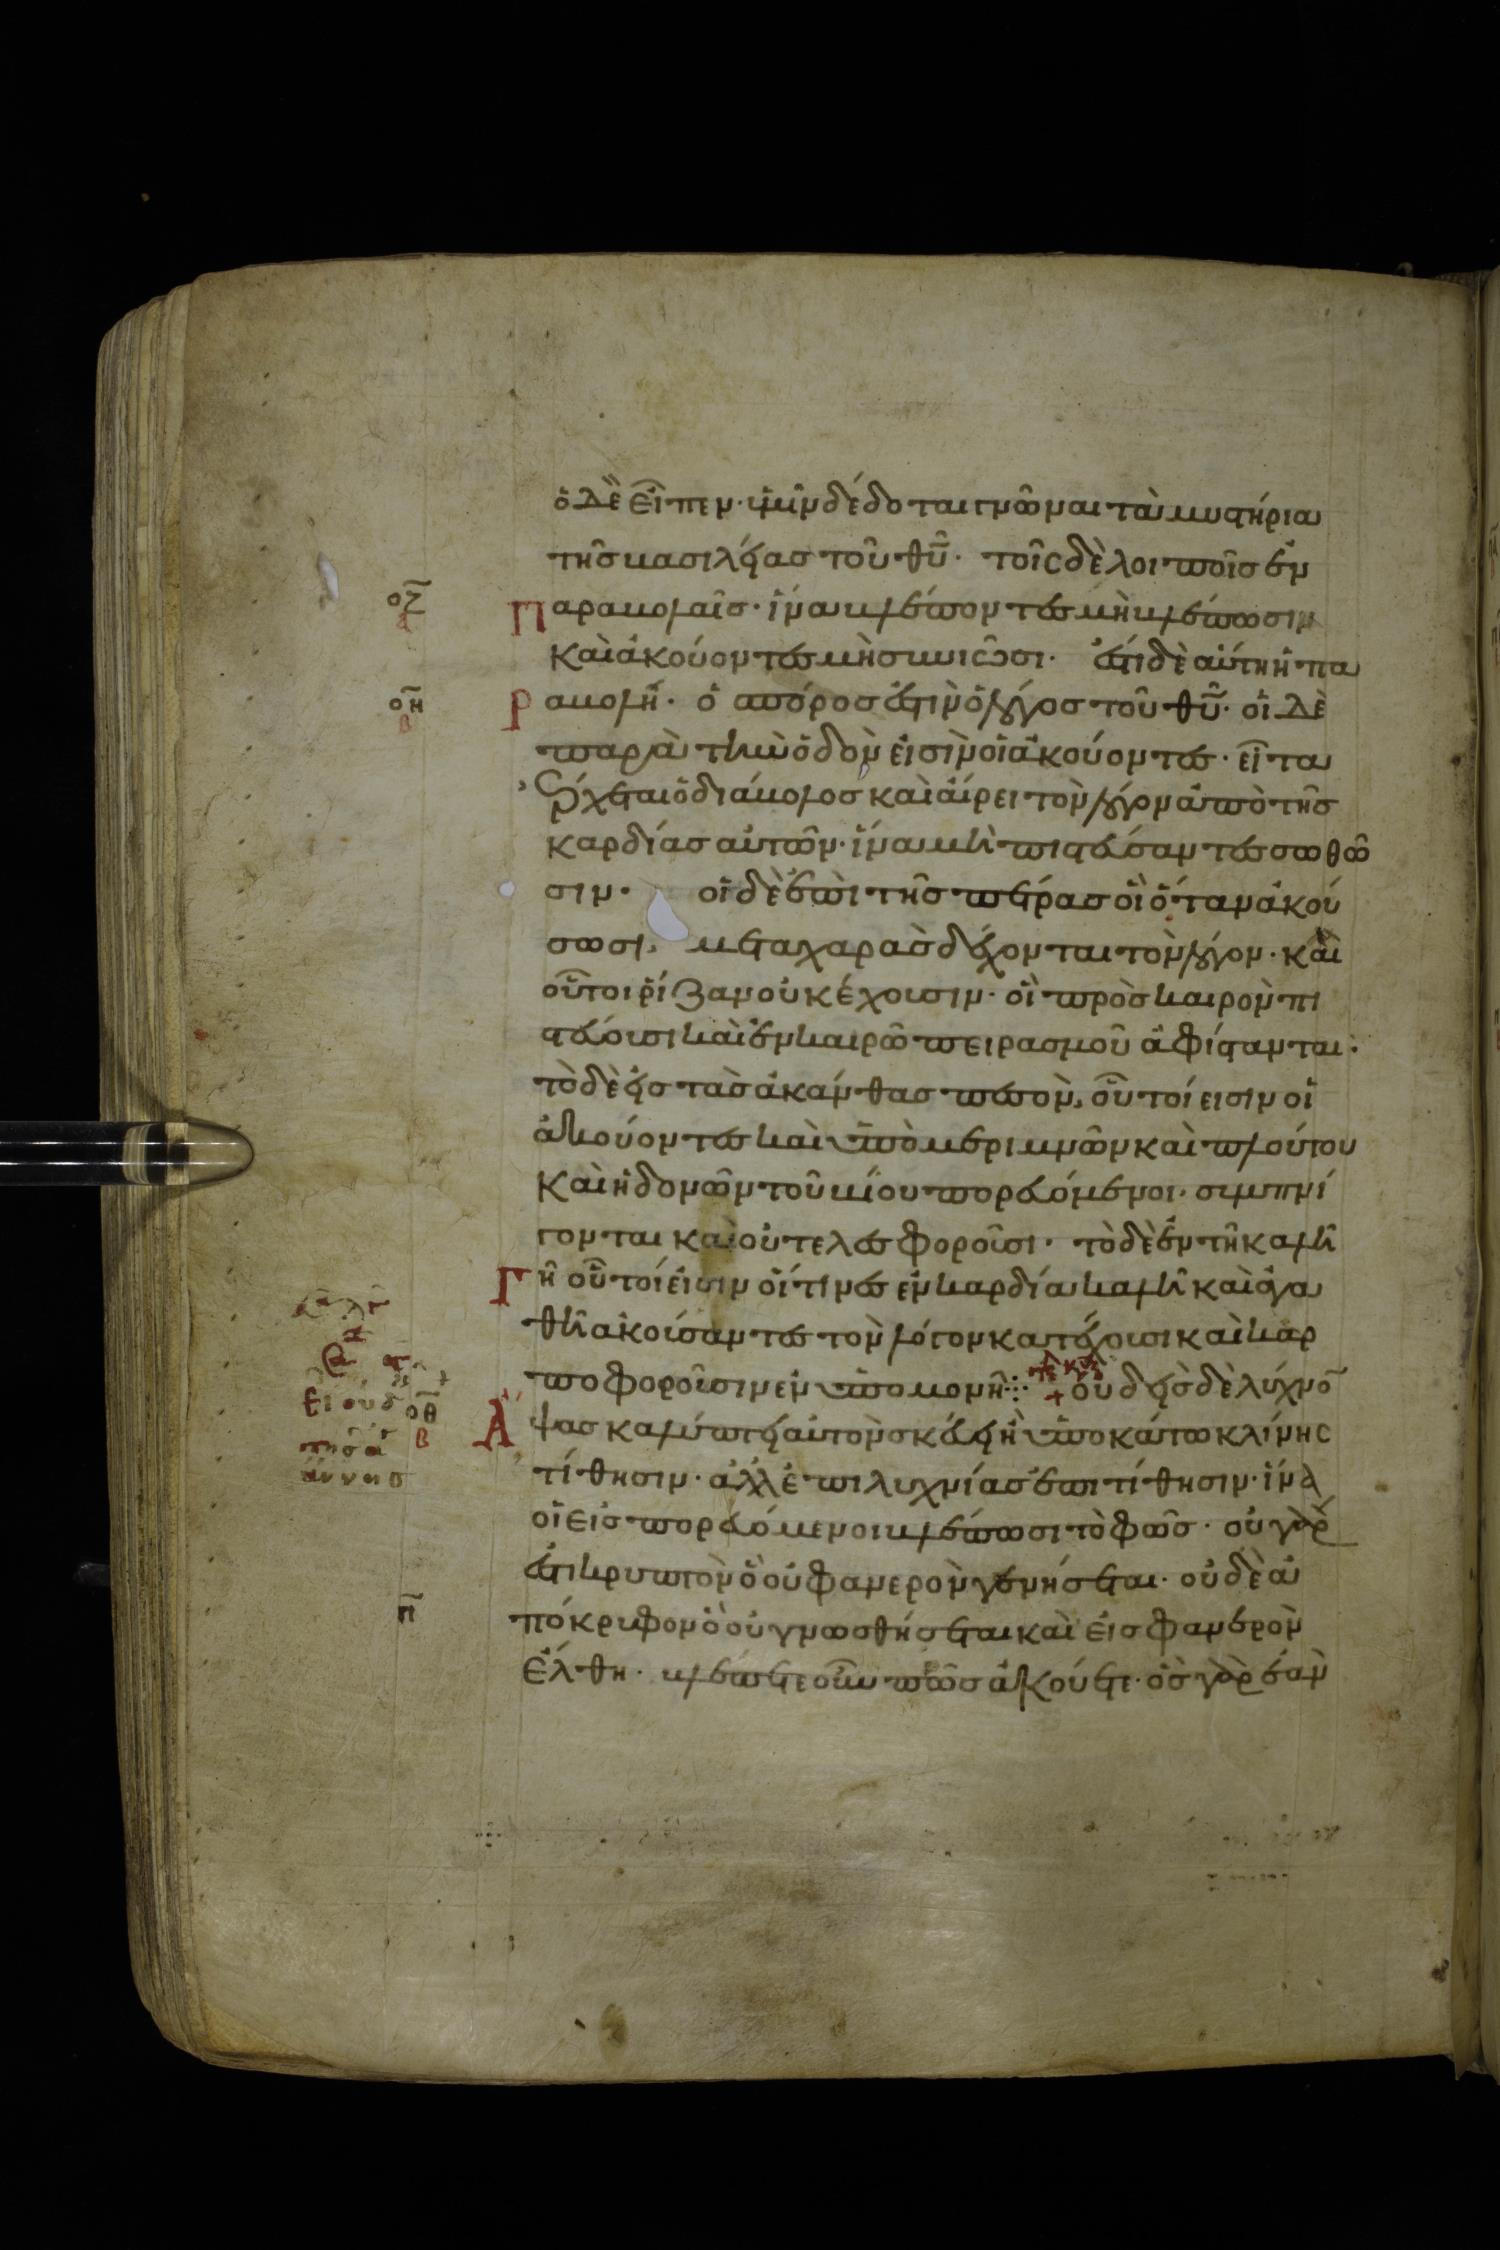 ὁ δὲ εἶπεν· ὑμῖν δέδοται γνῶναι τὰ μυστήρια
τῆς βασιλείας τοῦ θῦ· τοῖς δὲ λοιποῖς ἐν
οζ
παραβολαῖς· ἵνα βλέποντες μὴ βλέπωσιν
καὶ ἀκούοντες μὴ συνιῶσι· ἔστι δὲ αὕτη ἡ πα
οη
β
ραβολή· ὁ σπόρος ἐστὶν ὁ λόγος τοῦ θῦ· οἱ δὲ
παρὰ τὴν ὁδὸν εἰσὶν οἱ ἀκούοντες· εἶτα
ἔρχεται ὁ διάβολος καὶ αἴρει τὸν λόγον ἀπὸ τῆς
καρδίας αὐτῶν· ἵνα μὴ πιστεύσαντες σωθῶ
σιν· οἱ δὲ ἐπὶ τῆς πέτρας οἳ ὅταν ἀκού
σωσι, μετὰ χαρᾶς δέχονται τὸν λόγον· καὶ
οὗτοι ῥίζαν οὐκ ἔχουσιν· οἳ πρὸς καιρὸν πι
στεύουσι καὶ ἐν καιρῶ πειρασμοῦ ἀφίστανται·
τὸ δὲ εἰς τὰς ἀκάνθας πεσὸν, οὗτοί εισιν οἱ
ἀκούοντες καὶ ὑπὸ μεριμνῶν καὶ πλούτου
καὶ ἡδονῶν τοῦ βίου πορευόμενοι· συμπνί
γονται καὶ οὐ τελεσφοροῦσι· τὸ δὲ ἐν τῆ καλῆ
γῆ οὗτοί εἰσιν οἵτινες ἐν καρδία καλῆ καὶ ἀγα
θῆ ἀκούσαντες τὸν λόγον κατέχουσι καὶ καρ
ποφοροῦσιν ἐν ὑπομονῆ ⁘ + οὐδεὶς δὲ λύχνο̄
οθ
β
ἅψας καλύπτει αὐτὸν σκεύει ἢ ὑποκάτω κλίνης
τίθησιν· ἀλλ' ἐπι λυχνίας ἐπιτίθησιν· ἵνα
οἱ εἰσπορευόμενοι βλέπωσι τὸ φῶς· οὐ γάρ
ἐστι κρυπτὸν ὃ οὐ φανερὸν γενήσεται· οὐδὲ ἀ
π
πόκρυφον ὃ οὐ γνωσθήσεται καὶ εἰς φανερὸν
ἔλθη· βλέπετε οὖν πῶς ἀκούετε· ὃς γὰρ ἐὰν